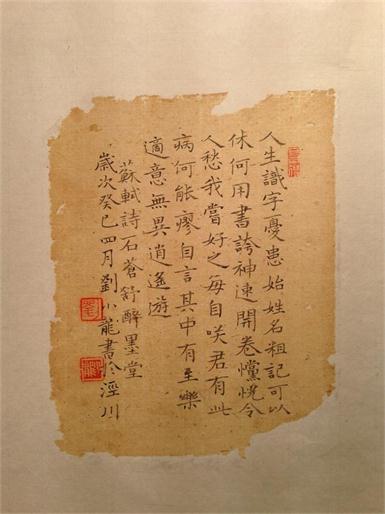 人生識字憂患始姓名粗記可以
休何用書誇神速開卷戃怳令
人愁我嘗好之每自咲君有此
病何能瘳自言其中有至樂
適意無異逍遙游
蘇軾詩石蒼舒醉墨堂
歲次癸巳四月劉小龍書於涇川